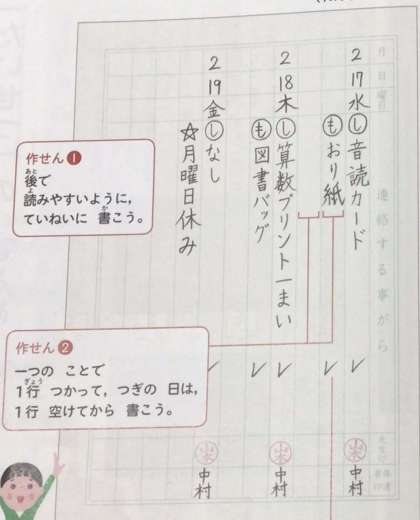 月 日 曜日 連絡する事がら
2 17 水 し 音読カード ✓ 中村
も おり紙 ✓
2 18 木 し 算数プリント一まい ✓ 中村
も 図書バッグ ✓
2 19 金 し なし ✓ 中村
☆月曜日休み
作せん❶
後で
読みやすいように，
ていねいに 書こう。
作せん❷
一つの ことで
1行 つかって，つぎの 日は，
1行 空けてから 書こう。